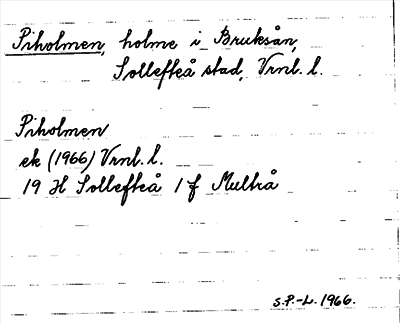 Piholmen, holme i Bruksån,
Sollefteå stad, Vrnl. l.
Piholmen
ek (1966) Vrnl. l.
19 H Sollefteå 1 f Multrå
S.P.-L. 1966.